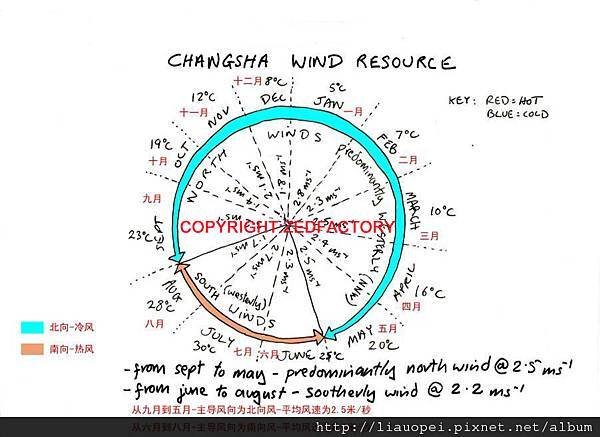 CHANGSHA WIND RESOURCE
KEY: RED=HOT
BLUE=COLD
十二月 8°c DEC
5°c JAN 一月
7°c FEB 二月
MARCH 10°c 三月
APRIL 16°c 四月
MAY 五月 20°c
JUNE 25°c 六月
JULY 30°c 七月
AUG 28°c 八月
SEPT 23°c 九月
OCT 19°c 十月
NOV 12°c 十一月
NORTH WINDS predominantly WESTERLY (WNN)
SOUTH (westerly) WINDS
2.8 ms⁻¹
2.3 ms⁻¹
2.4 ms⁻¹
2.5 ms⁻¹
2.3 ms⁻¹
COPYRIGHT ZEDFACTORY
北向-冷风
南向-热风
-from sept to may - predominantly north wind @ 2.5 ms⁻¹
-from june to august - southerly wind @ 2.2 ms⁻¹
从九月到五月-主导风向为北向风-平均风速为2.5米/秒
从六月到八月-主导风向为南向风-平均风
http://liauopei.pixnet.net/album